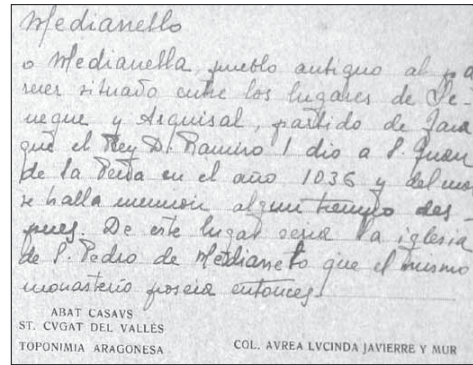 Medianello
o Medianella, pueblo antiguo al pa
recer situado entre los lugares de Se
negue y Arguisal, partido de Jaca
que el Rey D. Ramiro 1 dio a S. Juan
de la Peña en el año 1036 y del
se halla memoria algun tiempo des
pues. De este lugar seria la iglesia
de S. Pedro de Medianeto que el mismo
monasterio poseia entonces.
ABAT CASAVS
ST. CVGAT DEL VALLÈS
TOPONIMIA ARAGONESA
COL. AVREA LVCINDA JAVIERRE Y MUR